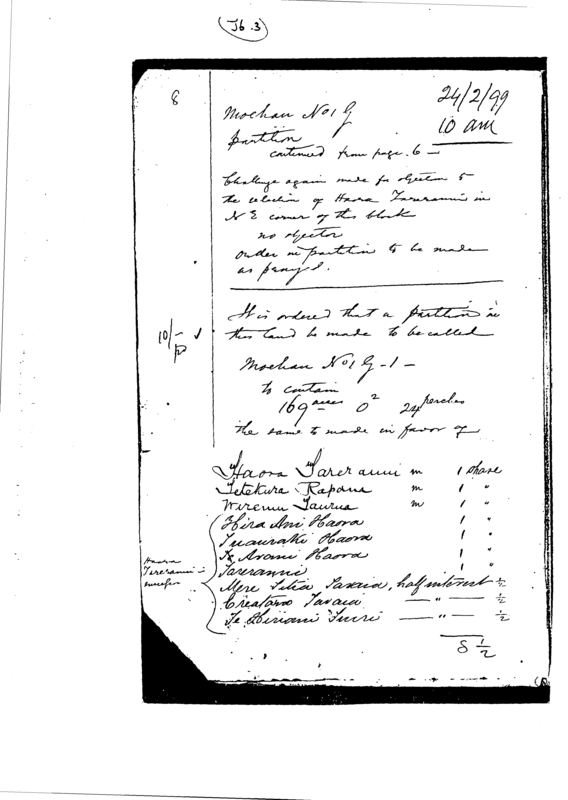 (Jb.3)
8
24/2/99
10 am
Moehau No 1 G
partition
continued from page 6 —
Challenge again made for objection to
the selection of Haora Tareranui in
N E corner of this block
no objector
order in partition to be made
as prayed.
It is ordered that a partition in
this land be made to be called
10/- ✓
pd
Moehau No 1 G - 1 —
to contain
169 acres 0 2 24 perches
the same to made in favor of
Haora Tareranui m 1 share
Tetekura Rapana m 1 "
Wiremu Taurua m 1 "
Hira Ani Haora 1 "
Tuauraki Haora 1 "
Te Aroani Haora 1 "
Haora
Tareranui —
Tareranui 1 "
Mere Titia Tavaia, half interest ½
Creatara Tavaia — " — ½
Te Hiriani Tuiri — " — ½
8 ½